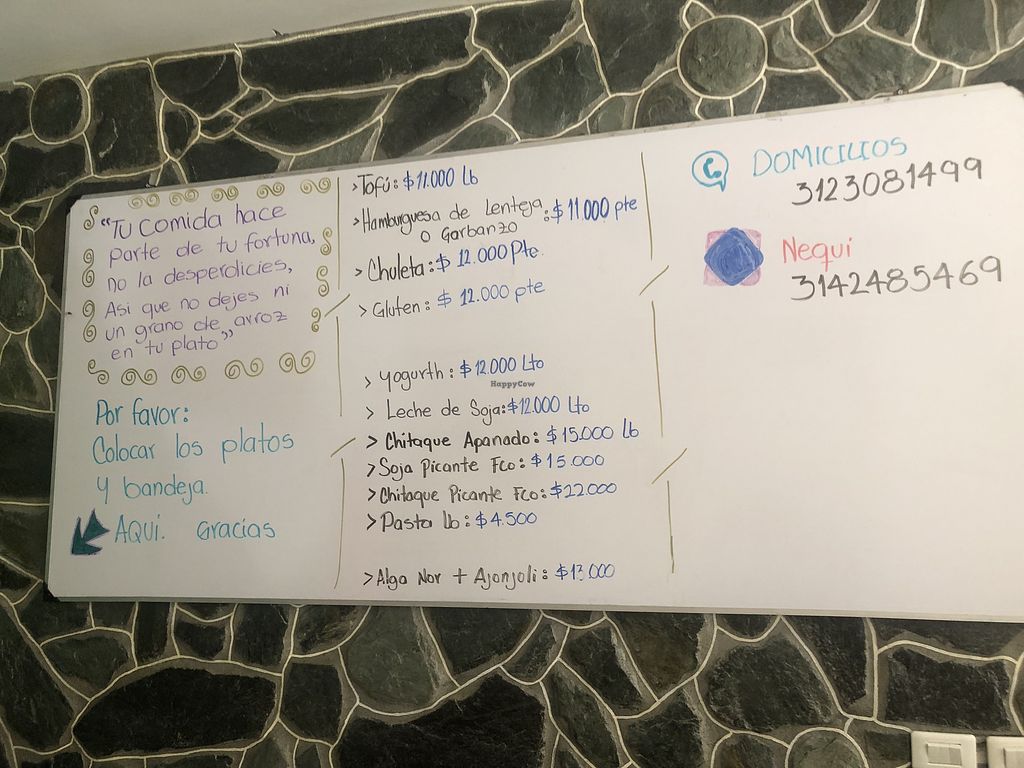 "Tu comida hace
parte de tu fortuna,
no la desperdicies,
Asi que no dejes ni
un grano de arroz
en tu plato"
Por favor:
Colocar los platos
y bandeja.
AQUI. Gracias
>Tofú: $11.000 Lb
>Hamburguesa de Lenteja: $11.000 pte
o Garbanzo
> Chuleta: $ 12.000 Pte
> Gluten: $ 12.000 pte
> Yogurth: $12.000 Lto
HappyCow
> Leche de Soja: $12.000 Lto
> Chitaque Apanado: $15.000 Lb
>Soja Picante Fco: $15.000
>Chitaque Picante Fco: $22.000
>Pasta lb: $4.500
>Alga Nor + Ajonjoli: $13.000
DOMICILIOS
3123081499
Nequi
3142485469